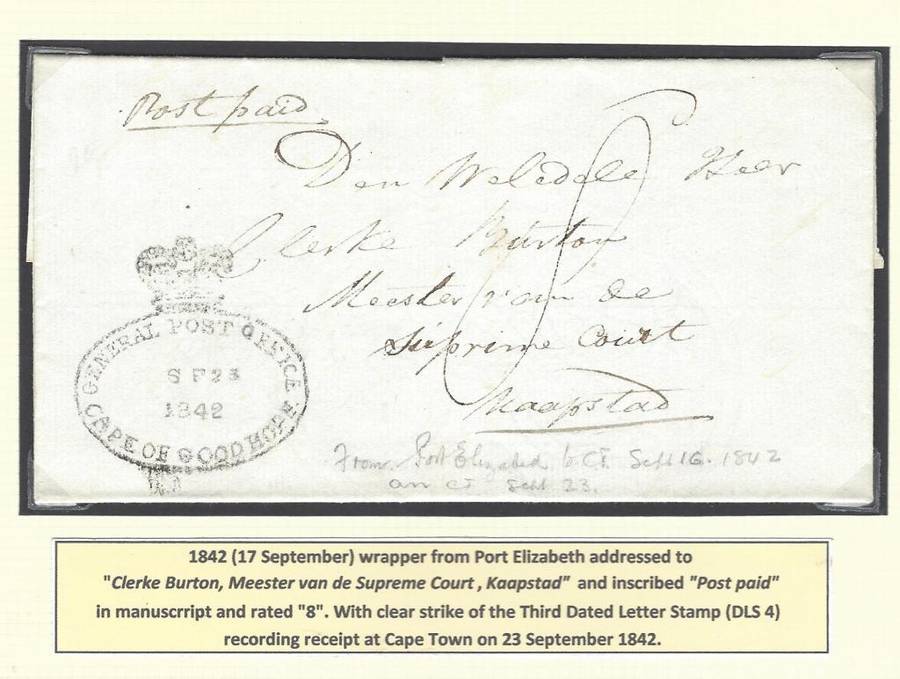 Post paid
Den Weledele Heer
Clerke Burton
Meester van de
Supreme Court
Kaapstad
8
GENERAL POST OFFICE
SE 23
1842
CAPE OF GOOD HOPE
From Port Elizabeth to CT. Sept 16. 1842
arr CT Sept 23.
1842 (17 September) wrapper from Port Elizabeth addressed to
"Clerke Burton, Meester van de Supreme Court , Kaapstad" and inscribed "Post paid"
in manuscrript and rated "8". With clear strike of the Third Dated Letter Stamp (DLS 4)
recording receipt at Cape Town on 23 September 1842.